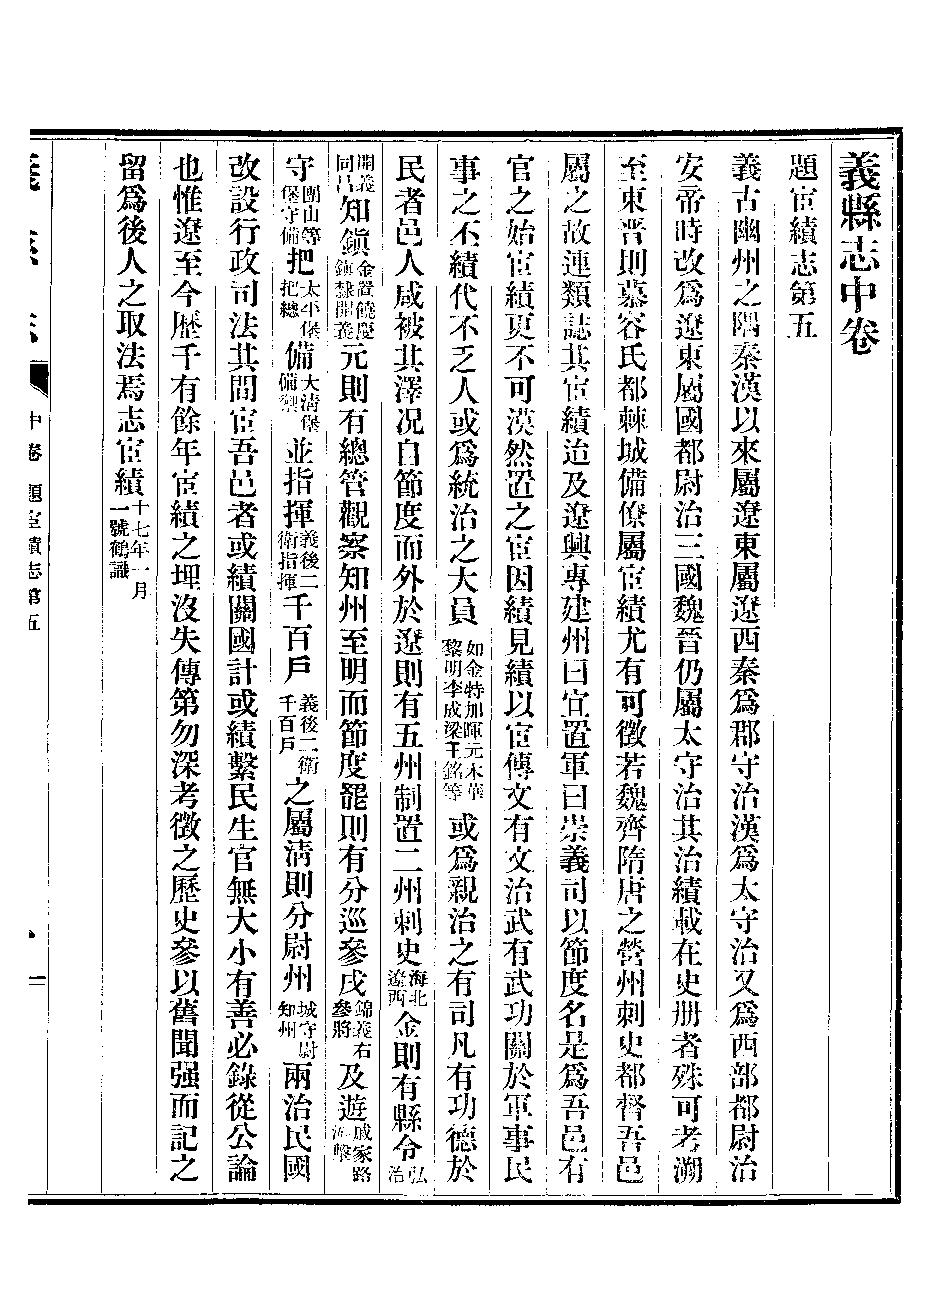 義縣志中卷
題宦績志第五
義古幽州之隅秦漢以來屬遼東屬遼西秦爲郡守治漢爲太守治又爲西部都尉治
安帝時改爲遼東屬國都尉治三國魏晉仍屬太守治其治績載在史册者殊可考溯
至東晋則慕容氏都棘城備僚屬宦績尤有可徵若魏齊隋唐之營州刺史都督吾邑
屬之故連類誌其宦績迨及遼興專建州曰宜置軍曰崇義司以節度名是爲吾邑有
官之始宦績更不可漠然置之宦因績見績以宦傳文有文治武有武功關於軍事民
事之不績代不乏人或爲統治之大員如金特加暉元木華黎明李成梁王銘等或爲親治之有司凡有功德於
民者邑人咸被其澤况自節度而外於遼則有五州制置二州刺史海北遼西金則有縣令弘治
開義同昌知鎭金置饒慶鎭隸開義元則有總管觀察知州至明而節度罷則有分巡參戌錦義右參將及遊戚家路游擊
守團山等堡守備把太平堡把總備大淸堡備禦並指揮義後二衛指揮千百戶義後二衛千百戶之屬淸則分尉州城守尉知州兩治民國
改設行政司法其間宦吾邑者或績關國計或績繫民生官無大小有善必錄從公論
也惟遼至今歷千有餘年宦績之埋沒失傳第勿深考徵之歷史參以舊聞强而記之
留爲後人之取法焉志宦績十七年一月一號鶴識
中卷 題宦績志第五
一